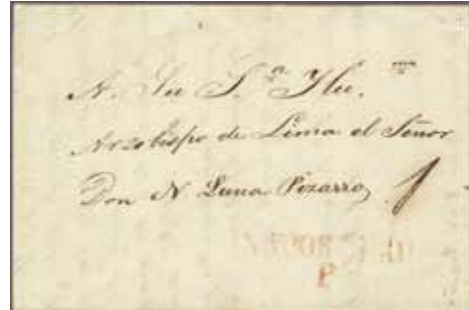 A. Su S.ª Ylu.ᵐᵃ
Arzobispo de Lima el Señor
Don N Luna Pizarro
P